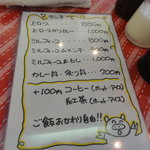 ランチ
ヒロース 880円
ヒロースかつカレー 1,000円
ミルフィーユ 800円
ミルフィーユ&メンチ 900円
ミルフィーユ&もも 1,000円
カレー丼・炙り丼 700円
+100円 コーヒー(ホット、アイス)
紅茶(ホット、アイス)
ご飯おかわり自由!!